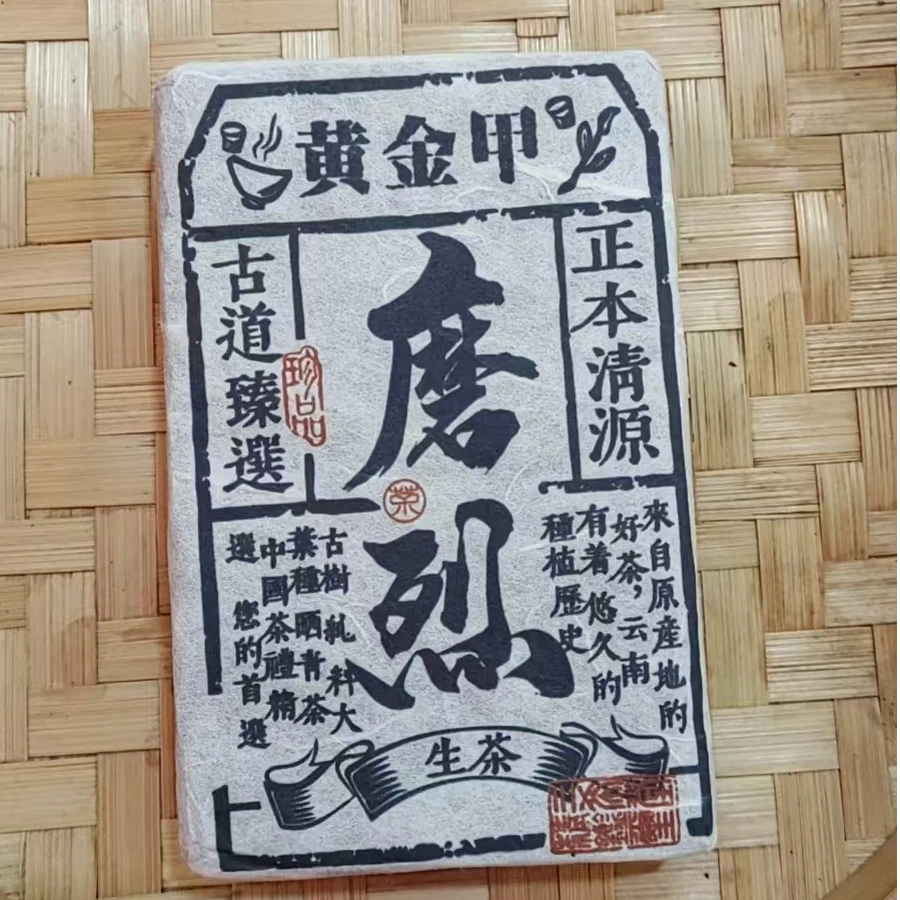 黄金甲
正本清源
古道臻選
珍品
磨烈
茶
來自原產地的
好茶，云南
有着悠久的
種植歷史
古樹 料大
葉種晒青茶
中國茶禮精
選 您的首選
生茶